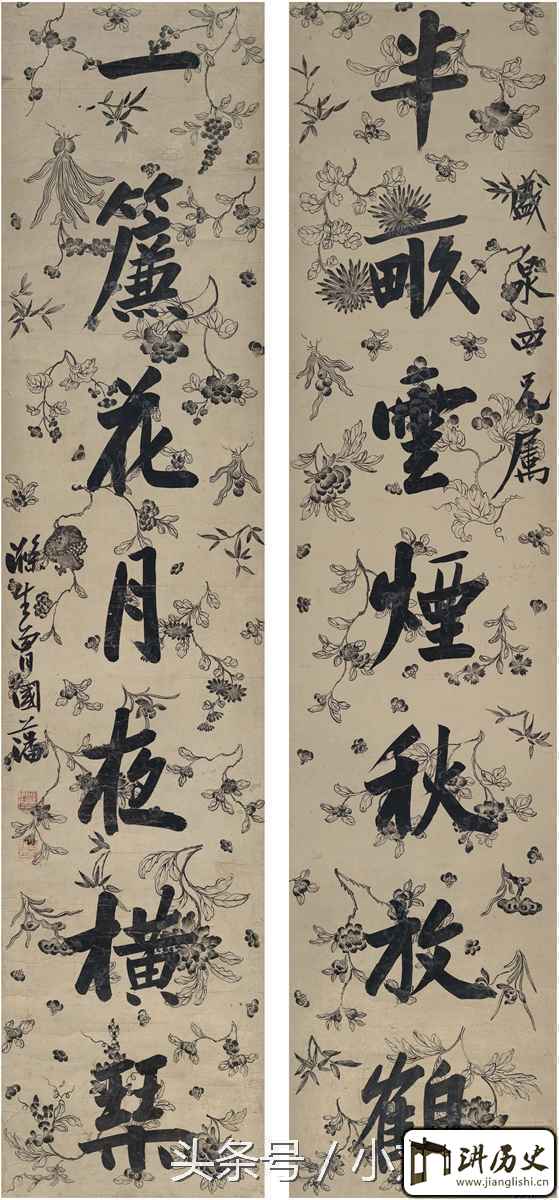 半畝雲煙秋放鶴
盛泉四兄属
一簾花月夜橫琴
滌生曾國藩
头条号 / 小
讲历史
www.jianglishi.cn